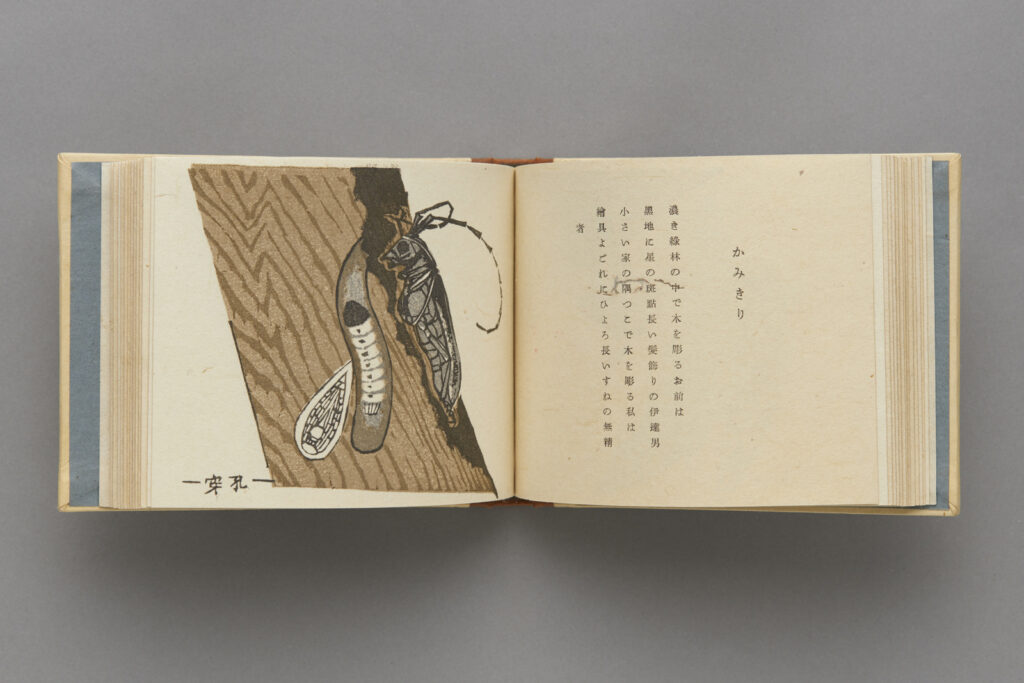 かみきり
濃き綠林の中で木を彫るお前は
黑地に星の斑點長い髮飾りの伊達男
小さい家の隅つこで木を彫る私は
繪具よごれにひよろ長いすねの無精
者
—穿孔—